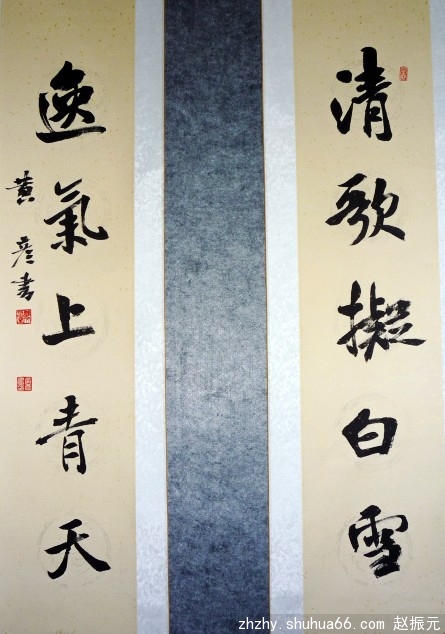 清歌擬白雪
逸氣上青天
黄彦書
zhzhy.shuhua66.com 赵振元